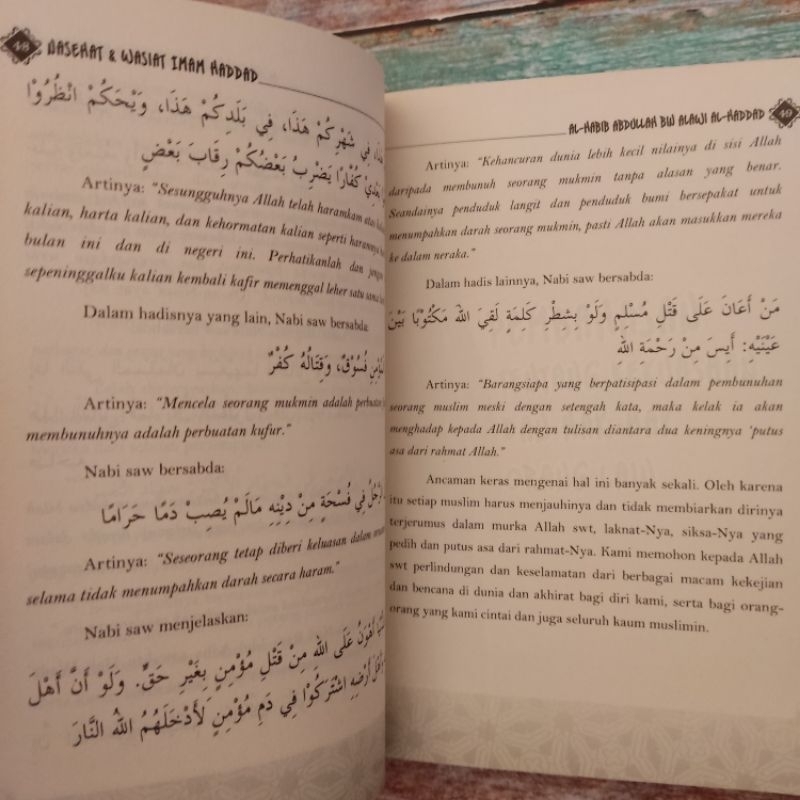 48
NASEHAT & WASIAT IMAM HADDAD
هَذَا، فِي شَهْرِكُمْ هَذَا، فِي بَلَدِكُمْ هَذَا، وَيْحَكُمْ انْظُرُوا
كُفَّارًا يَضْرِبُ بَعْضُكُمْ رِقَابَ بَعْضٍ
Artinya: "Sesungguhnya Allah telah haramkam atas
kalian, harta kalian, dan kehormatan kalian seperti haramnya
bulan ini dan di negeri ini. Perhatikanlah dan
sepeninggalku kalian kembali kafir memenggal leher satu sama
Dalam hadisnya yang lain, Nabi saw bersabda:
فُسُوْقٌ، وَقِتَالُهُ كُفْرٌ
Artinya: "Mencela seorang mukmin adalah perbuatan
membunuhnya adalah perbuatan kufur."
Nabi saw bersabda:
فِي فُسْحَةٍ مِنْ دِيْنِهِ مَالَمْ يُصِبْ دَمًا حَرَامًا
Artinya: "Seseorang tetap diberi keluasan dalam
selama tidak menumpahkan darah secara haram."
Nabi saw menjelaskan:
أَهْوَنُ عَلَى اللهِ مِنْ قَتْلِ مُؤْمِنٍ بِغَيْرِ حَقٍّ. وَلَوْ أَنَّ أَهْلَ
أَرْضِهِ اشْتَرَكُوْا فِي دَمِ مُؤْمِنٍ لَأَدْخَلَهُمُ اللهُ النَّارَ
AL-HABIB ABDULLAH BIN ALAWI AL-HADDAD
49
Artinya: "Kehancuran dunia lebih kecil nilainya di sisi Allah
daripada membunuh seorang mukmin tanpa alasan yang benar.
Seandainya penduduk langit dan penduduk bumi bersepakat untuk
menumpahkan darah seorang mukmin, pasti Allah akan masukkan mereka
ke dalam neraka."
Dalam hadis lainnya, Nabi saw bersabda:
مَنْ أَعَانَ عَلَى قَتْلِ مُسْلِمٍ وَلَوْ بِشِطْرِ كَلِمَةٍ لَقِيَ اللهَ مَكْتُوْبًا بَيْنَ
عَيْنَيْهِ: أَيِسَ مِنْ رَحْمَةِ اللهِ
Artinya: "Barangsiapa yang berpatisipasi dalam pembunuhan
seorang muslim meski dengan setengah kata, maka kelak ia akan
menghadap kepada Allah dengan tulisan diantara dua keningnya 'putus
asa dari rahmat Allah."
Ancaman keras mengenai hal ini banyak sekali. Oleh karena
itu setiap muslim harus menjauhinya dan tidak membiarkan dirinya
terjerumus dalam murka Allah swt, laknat-Nya, siksa-Nya yang
pedih dan putus asa dari rahmat-Nya. Kami memohon kepada Allah
swt perlindungan dan keselamatan dari berbagai macam kekejian
dan bencana di dunia dan akhirat bagi diri kami, serta bagi orang-
orang yang kami cintai dan juga seluruh kaum muslimin.